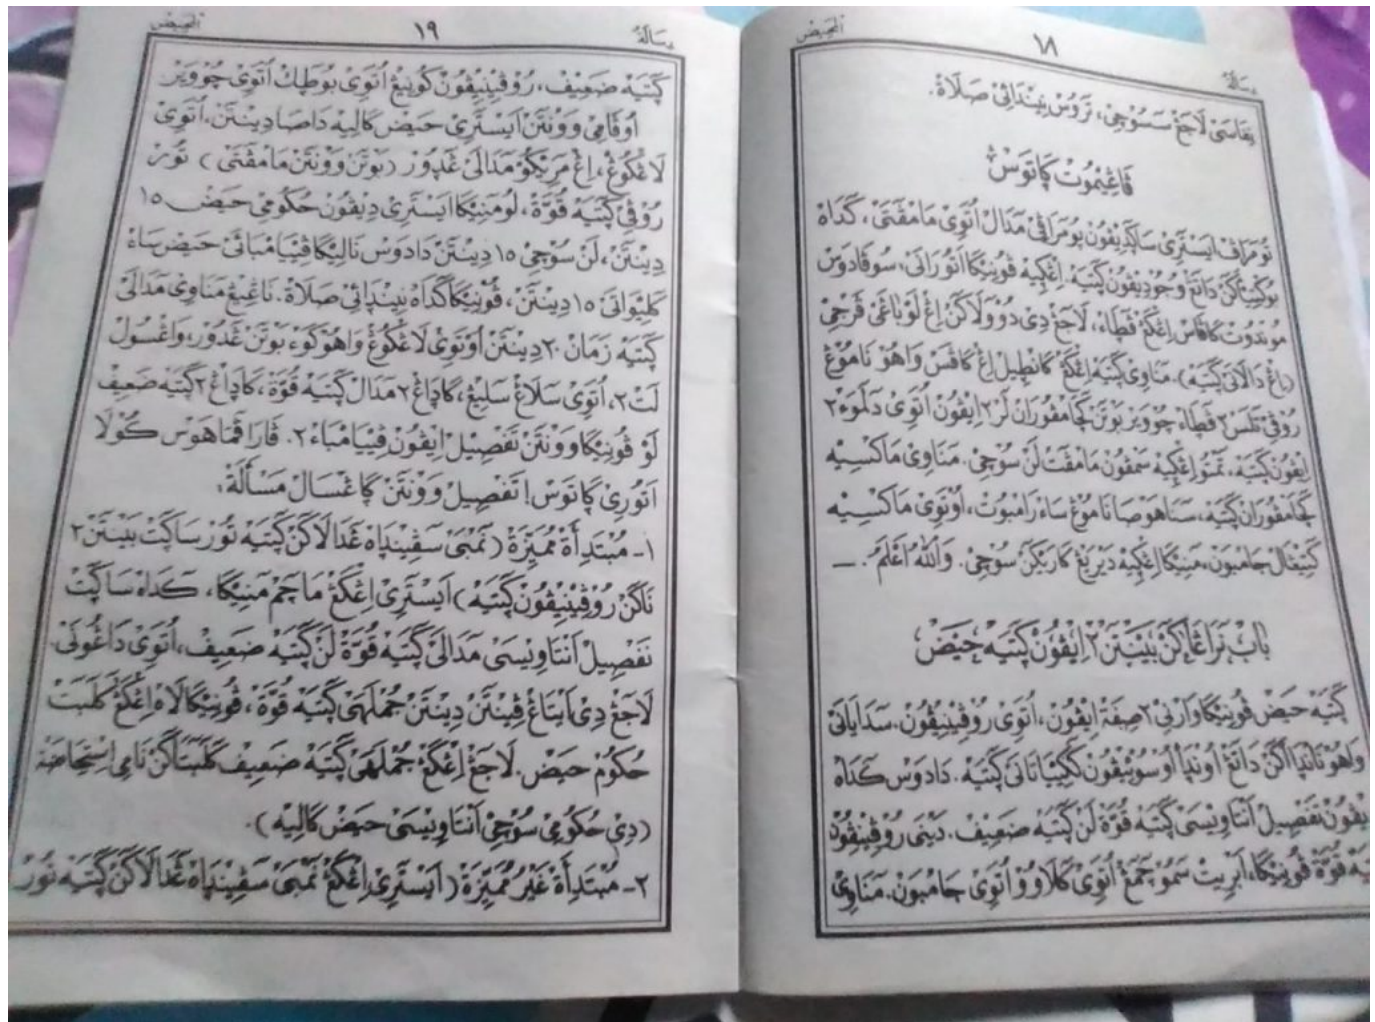 رسالة ١٨ المحيض
يڠاسى لاجڠ سسوچي، تروس نيندائي صلاة.
ڤاڠيموت ڮاتوس
تومراڤ ايستري ساڮديڤون بومراڤي مدال اتوي مامڤتى، كداه
بوكتيأكن داتڠ وجوديڤون ڮتيه. اڠڮيه ڤونيكا اتوراتى، سوڤادوس
موندوت كاڤاس اڠكڠ ڤطاء، لاجڠ دي دوولاكن اڠ لوباڠى فرجي
(اڠ دالاتى ڮتيه). مناوي ڮتيه اڠكڠ كانطيل اڠ كاڤس واهو ناموڠ
روڤي تلس٢ ڤطاء چووير بوتن چامڤوران لر٢ ايڤون اتوي دلموء٢
ايڤون ڮتيه، تمتو اڠڮيه سمڤون مامڤت لن سوچي. مناوي ماكسيه
چامڤوران ڮتيه، سناهوصا ناموڠ ساء رامبوت، اوتوي ماكسيه
كيڠال جامبون، منيكا اڠڮيه ديريڠ كاربكن سوچي. والله اعلم. ــ
باب نراڠاكن بيتن٢ ايڤون ڮتيه حيض
ڮتيه حيض ڤونيكا وارني٢ صفة ايڤون، اتوي روڤينيڤون. سداياتى
واهو ناندااكن داتڠ اوندا أوسونيڤون ككياتانى ڮتيه. دادوس كداه
يڤون تفصيل انتاويسى ڮتيه قوة لن ڮتيه ضعيف. دينى روڤينيڤون
يه قوة ڤونيكا، ابريت سمو چمڠ اتوي كلاوو اتوي جامبون. مناوي
رسالة ١٩ المحيض
ڮتيه ضعيف، روڤينيڤون كونيڠ اتوي بوطك اتوي چووير
اوڤامي وونتن ايستري حيض كاليه داصا دينتن. اتوي
لاڠكوڠ، اڠ مريكو مدالى ڠدور (بوتن وونتن مامڤتى) تور
روڤي ڮتيه قوة، لومنيكا ايستري ديڤون حكومي حيض ١٥
دينتن، لن سوچي ١٥ دينتن دادوس ناليكا ڤييامباتى حيض ساء
كليواتى ١٥ دينتن، ڤونيكا كداه نيندائي صلاة. ناڠيڠ مناوي مدالى
ڮتيه زمان ٢٠ دينتن اوتوي لاڠكوڠ واهو كوء بوتن ڠدور، واڠسول
لت٢، اتوي سلاڠ سليڠ، كاداڠ٢ مدال ڮتيه قوة، كاداڠ٢ ڮتيه ضعيف
لو ڤونيكا وونتن تفصيل ايڤون ڤييامباء٢. ڤارا ڤماهوس كولا
اتوري ڮاتوس! تفصيل وونتن ڮاڠسال مسألة:
١- مبتدأة مميزة (نمبى سڤينداه ڠدالاكن ڮتيه تور ساكت بيتن٢
ناكن روڤينيڤون ڮتيه) ايستري اڠكڠ ماچم منيكا، كداه ساكت
تفصيل انتاويسى مدالى ڮتيه قوة لن ڮتيه ضعيف، اتوي داڠونى.
لاجڠ دي ايتاڠ ڤينتن دينتن جملهى ڮتيه قوة، ڤونيكالاه اڠكڠ كلبت
حكوم حيض. لاجڠ اڠكڠ جملهى ڮتيه ضعيف كلبتاكن نامي استحاضة
(دي حكومي سوچي انتاويسى حيض كاليه).
٢- مبتدأة غير مميزة (ايستري اڠكڠ نمبى سڤينداه ڠدالاكن ڮتيه تور